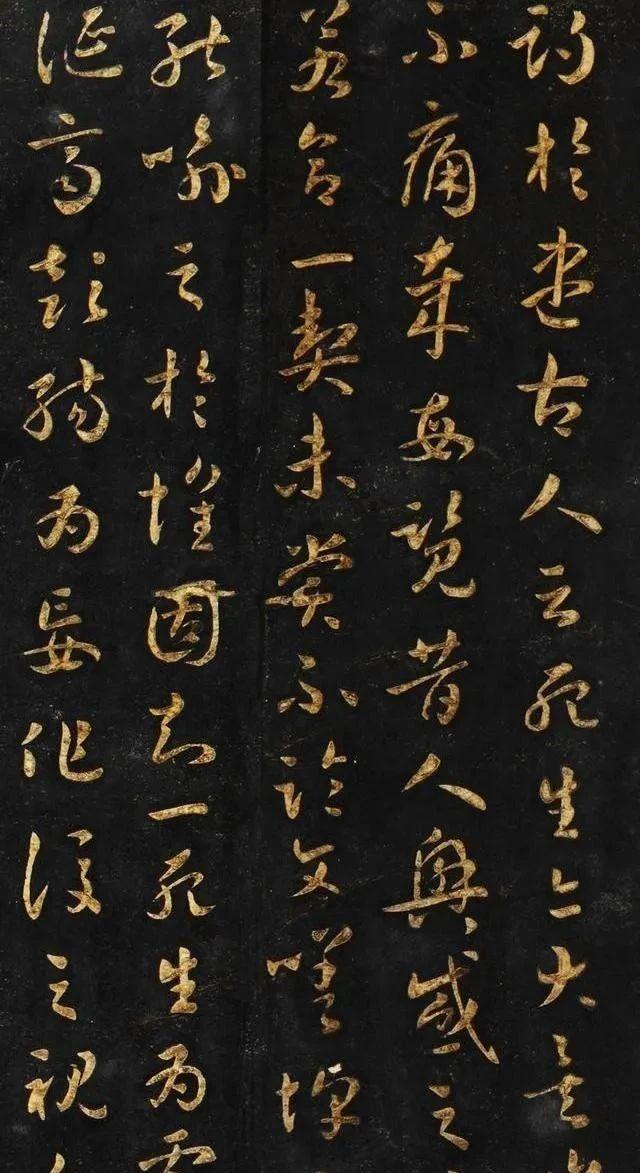 期於盡古人云死生亦大矣
不痛哉每覽昔人興感之
若合一契未嘗不臨文嗟悼
能喻之於懷固知一死生為虛
誕齊彭殤為妄作後之視